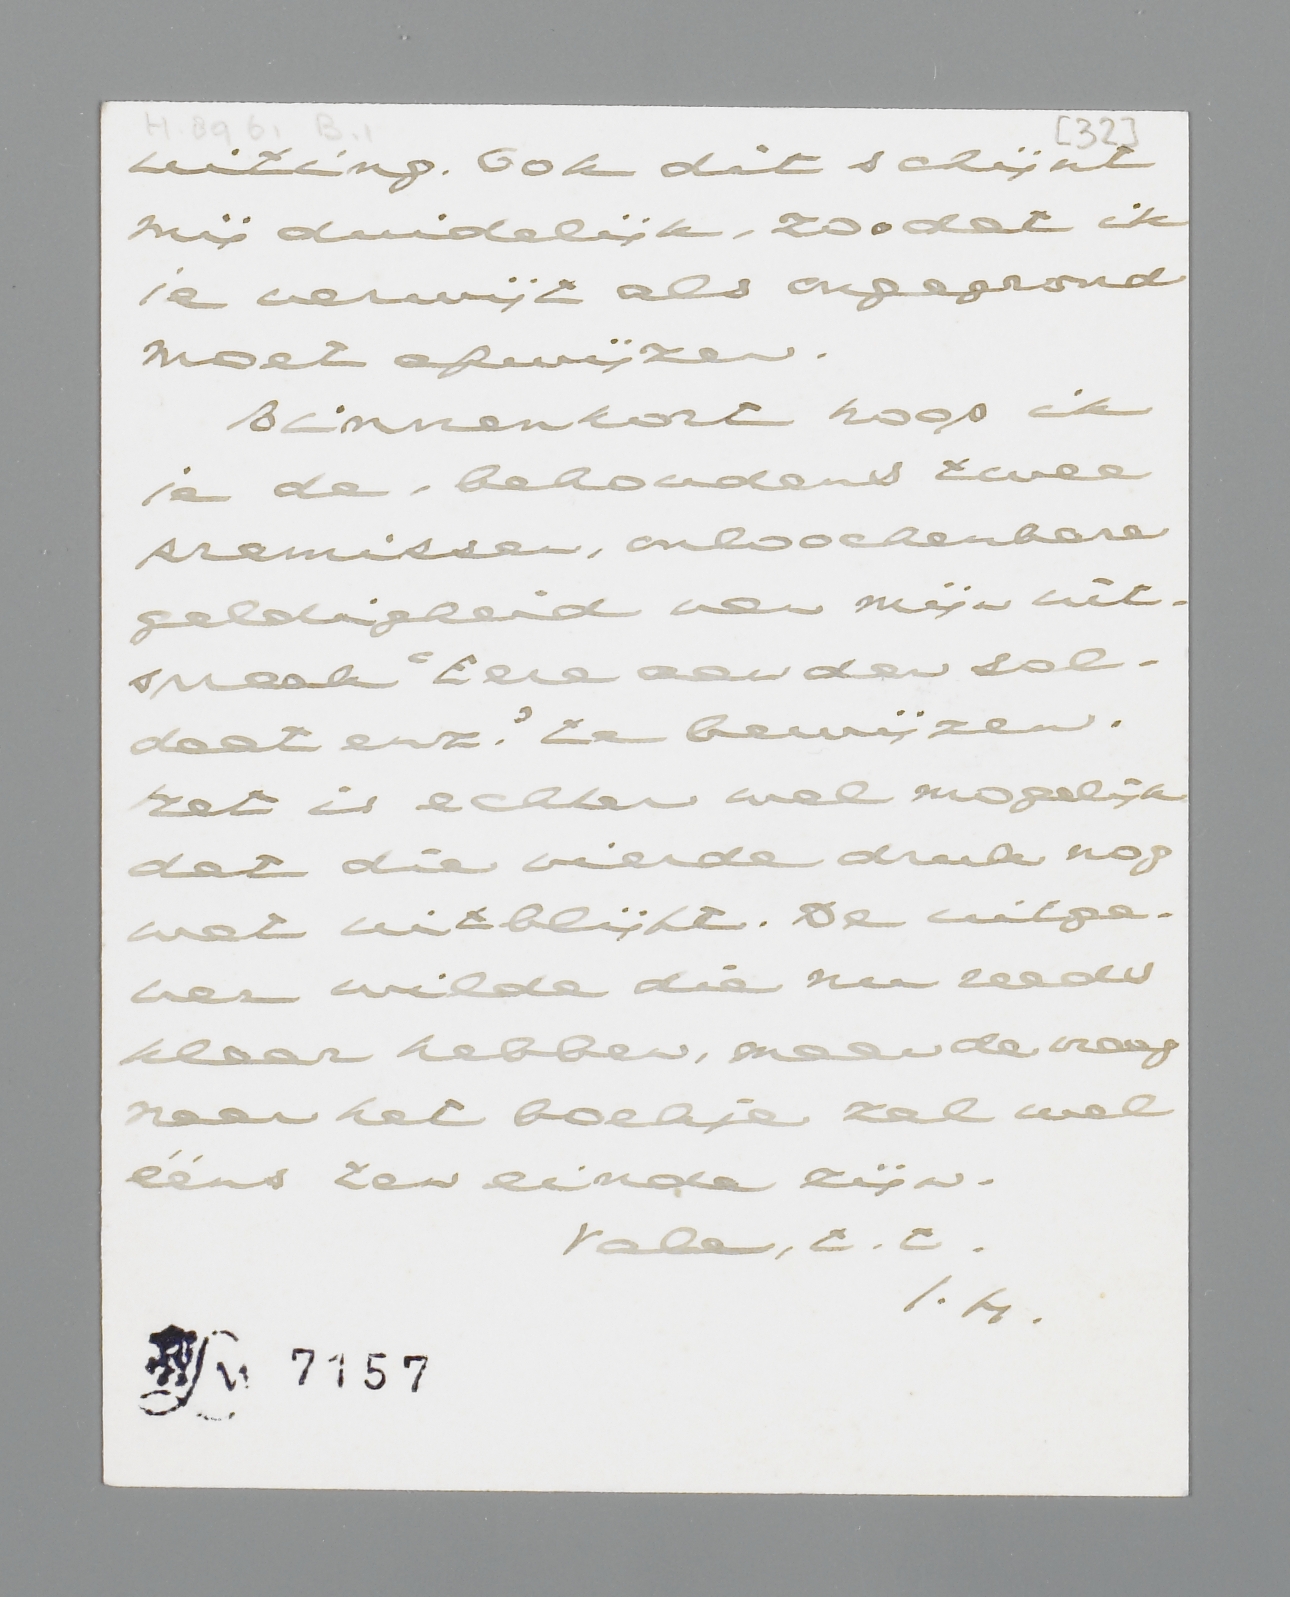 H.896, B.1 [32]
uiting. Ook dit schijnt
mij duidelijk, zoodat ik
je verwijt als ongegrond
moet afwijzen.
Binnenkort hoop ik
je de, behoudens twee
premissen, onloochenbare
geldigheid van mijn uit-
spraak "Eere aan den sol-
daat enz." te bewijzen.
Het is echter wel mogelijk
dat die vierde druk nog
wat uitblijft. De uitge-
ver wilde die nu reeds
klaar hebben, maar de vraag
naar het boekje zal wel
ééns ten einde zijn.
Vale, t.t.
7157